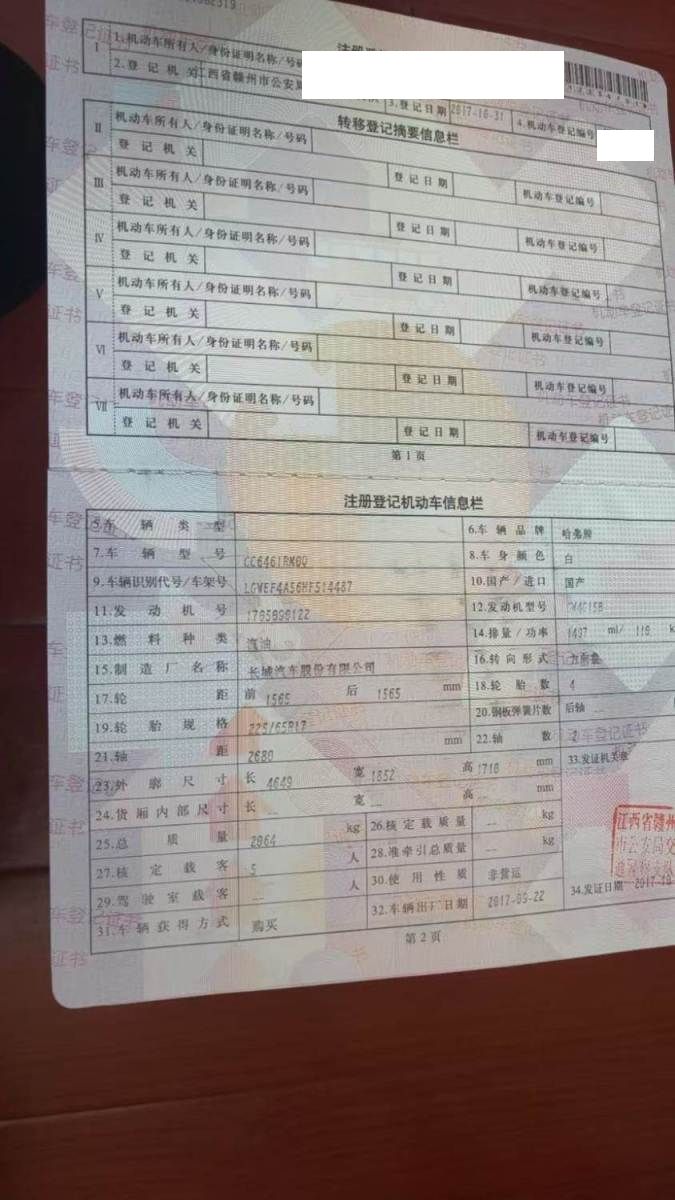 注册登
I 1.机动车所有人/身份证明名称/号码
2.登记机关 西省赣州市公安局 3.登记日期 2017-10-31 4.机动车登记编号
转移登记摘要信息栏
II 机动车所有人/身份证明名称/号码
登记机关 登记日期 机动车登记编号
III 机动车所有人/身份证明名称/号码
登记机关 登记日期 机动车登记编号
IV 机动车所有人/身份证明名称/号码
登记机关 登记日期 机动车登记编号
V 机动车所有人/身份证明名称/号码
登记机关 登记日期 机动车登记编号
VI 机动车所有人/身份证明名称/号码
登记机关 登记日期 机动车登记编号
VII 机动车所有人/身份证明名称/号码
登记机关 登记日期 机动车登记编号
第1页
注册登记机动车信息栏
5.车辆类型 6.车辆品牌 哈弗牌
7.车辆型号 CC6461RM0Q 8.车身颜色 白
9.车辆识别代号/车架号 LGWEF4A56HF514487 10.国产/进口 国产
11.发动机号 12.发动机型号
13.燃料种类 汽油 14.排量/功率 1497 ml/
15.制造厂名称 长城汽车股份有限公司 16.转向形式 方向盘
17.轮距 前 1565 后 1565 mm 18.轮胎数 4
19.轮胎规格 225/65R17 20.钢板弹簧片数 后轴 --
21.轴距 2680 mm 22.轴数 2
23.外廓尺寸 长 4649 宽 1852 高 1710 mm 33.发证机关章
24.货厢内部尺寸 长 -- 宽 -- 高 -- mm
25.总质量 2064 kg 26.核定载质量 -- kg
27.核定载客 5 人 28.准牵引总质量 -- kg
29.驾驶室载客 -- 人 30.使用性质 非营运
31.车辆获得方式 购买 32.车辆出厂日期 2017-09-22 34.发证日期 2017-10
江西省赣州
市公安局交
第2页